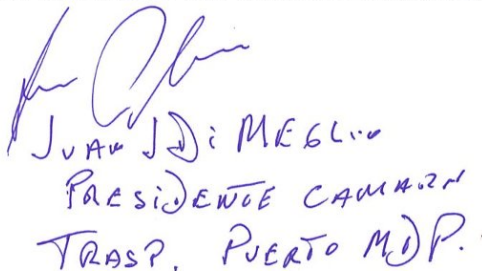 JUAN J Di MEGLio
PRESiDENTE CAMARA
TRASP. PUERTO MDP.